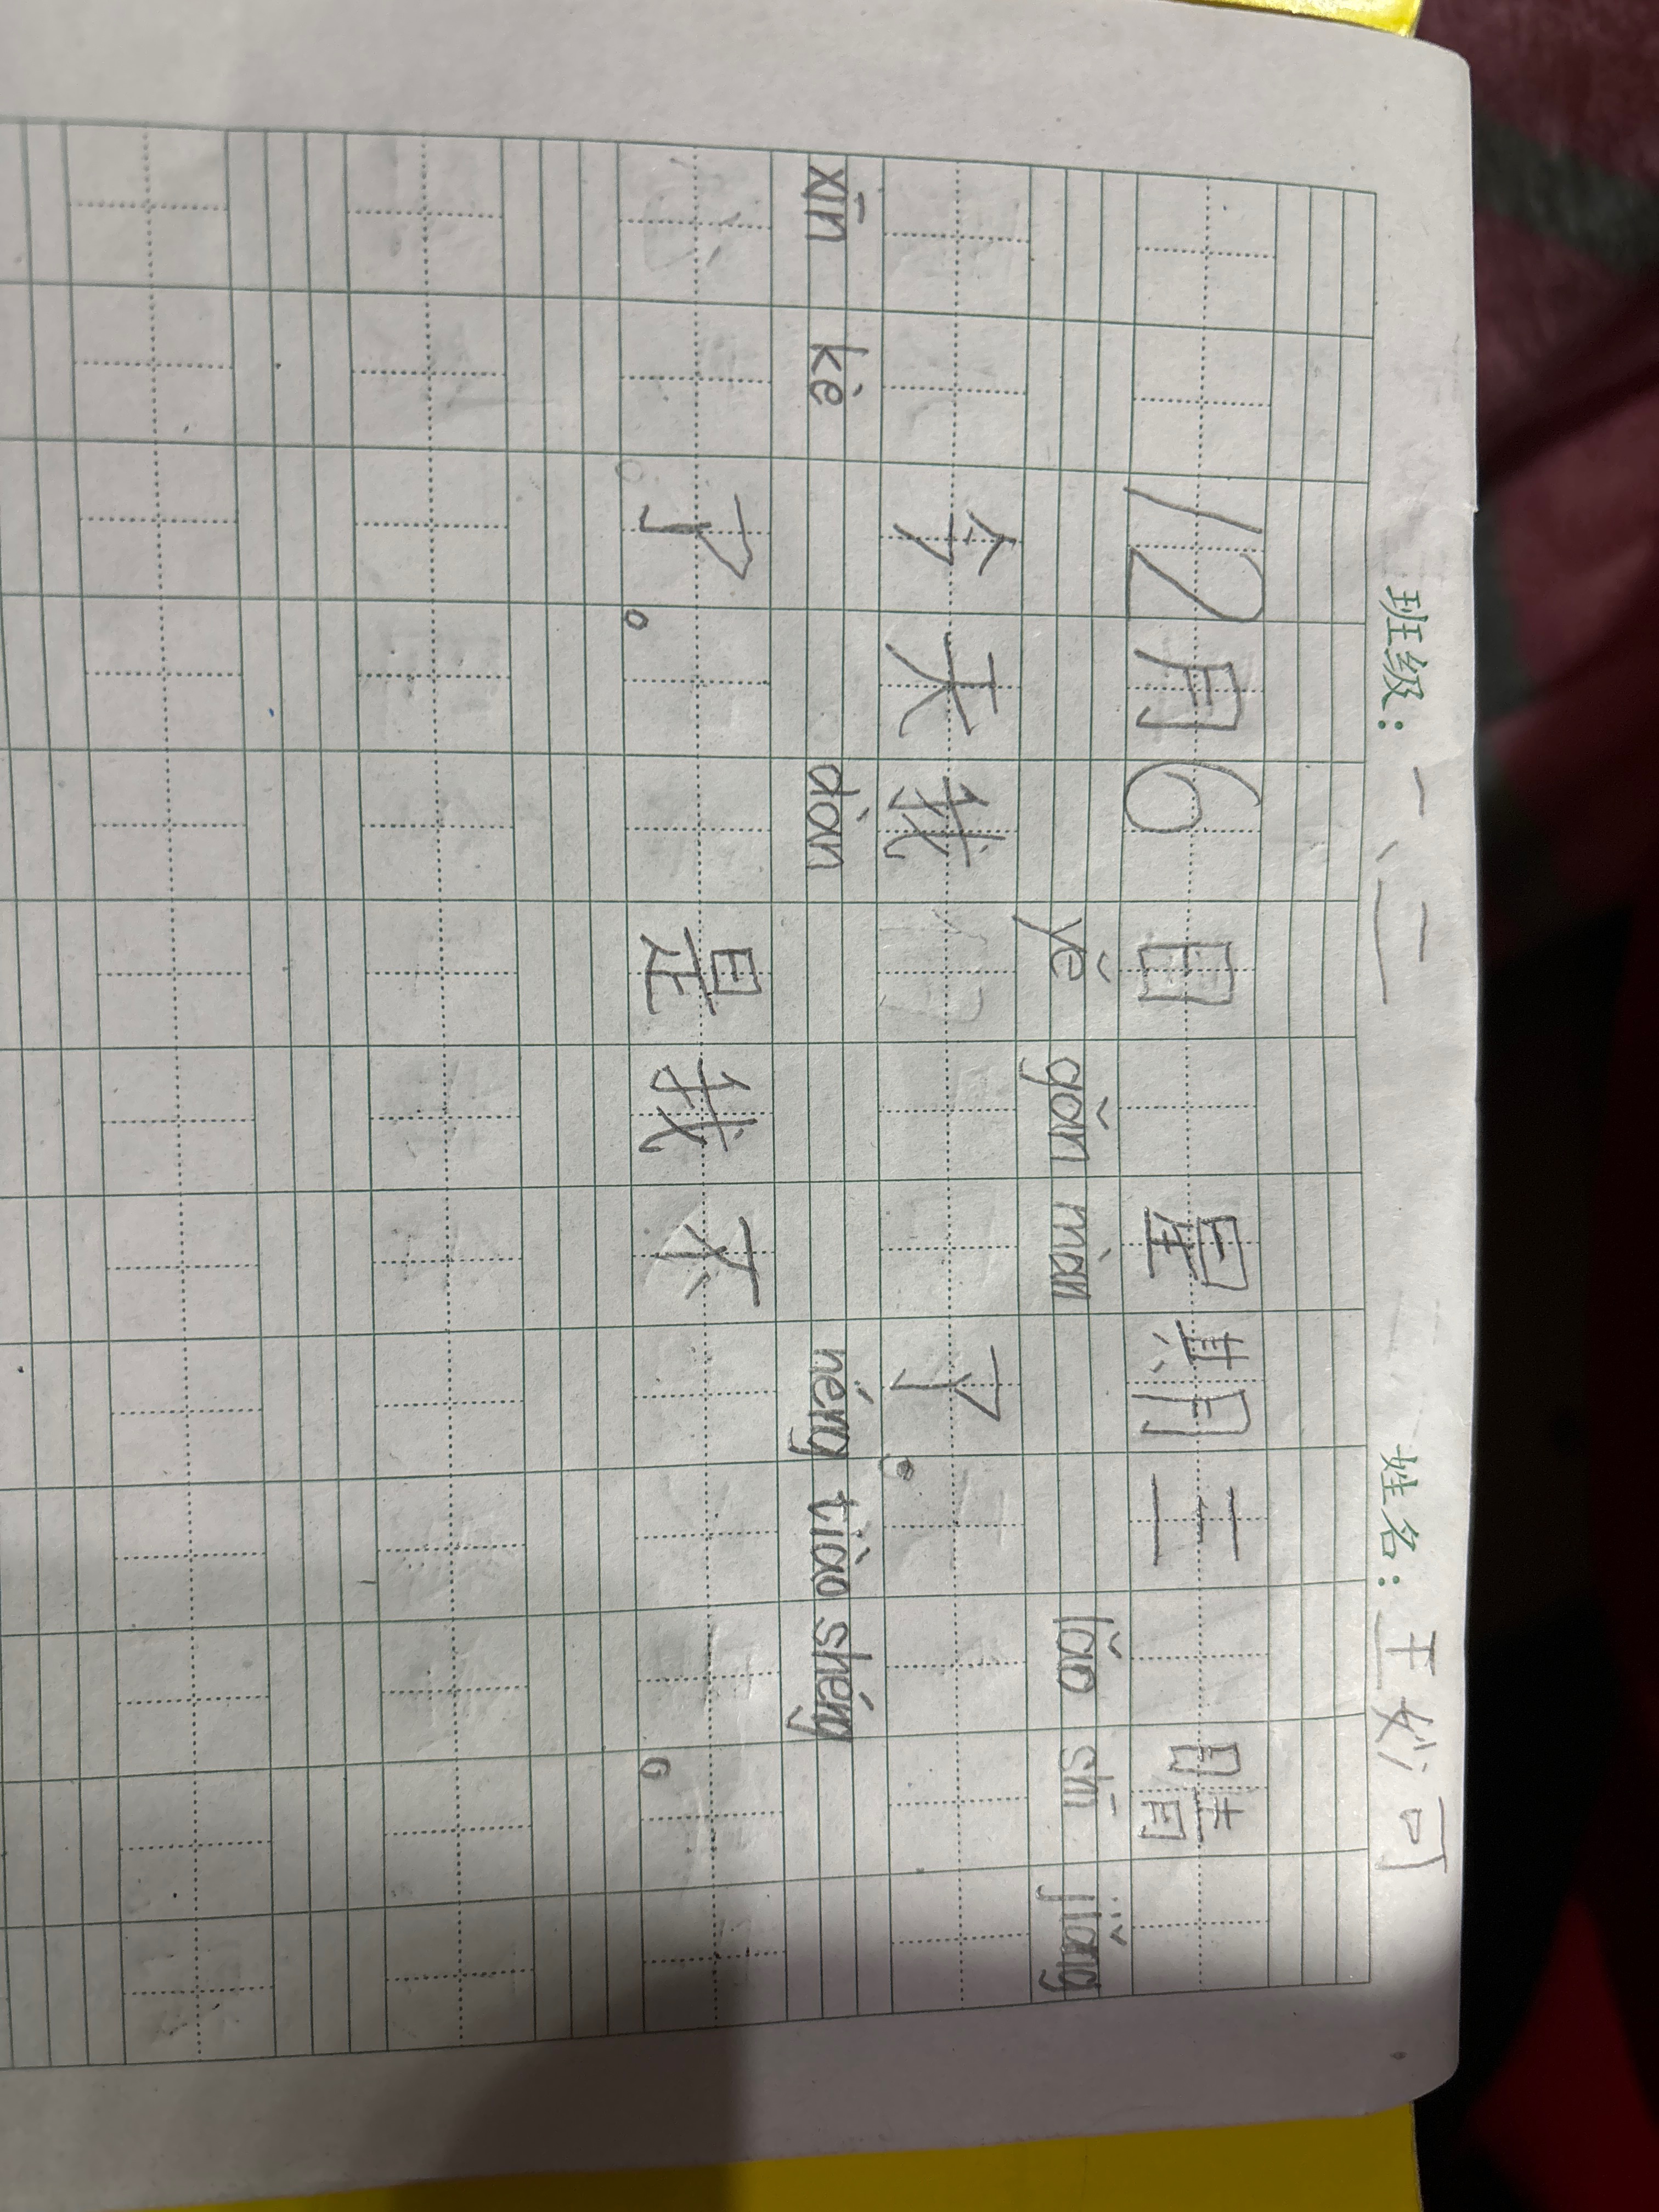 班级：一、二 姓名：王妙可
12月6日 星期三 晴
yě gǎn mào lǎo shī jiǎng
今天我 了。
xīn kè dàn néng tiào shéng
了。 是我不 。